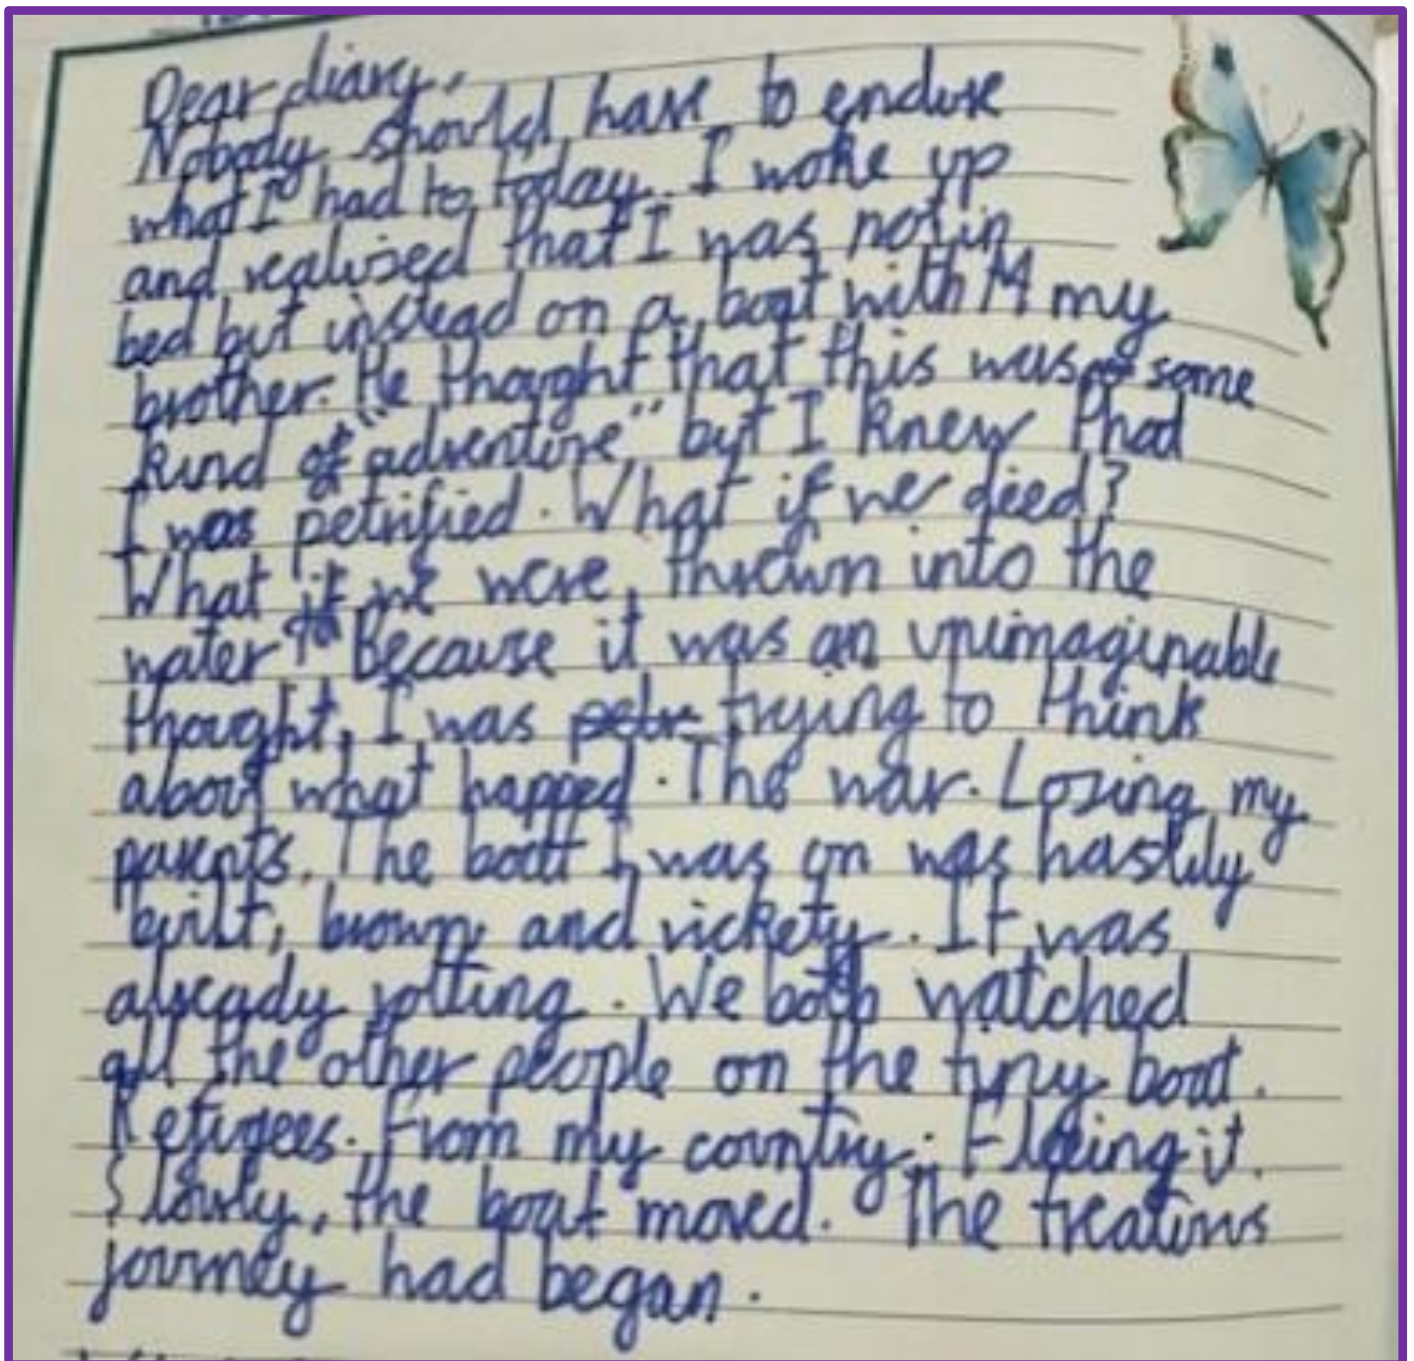 Dear diary,
Nobody should have to endure
what I had to today. I woke up
and realised that I was not in
bed but instead on a boat with M my
brother. He thought that this was some
kind of "adventure" but I knew that
I was petrified. What if we died?
What if we were thrown into the
water? Because it was an unimaginable
thought, I was petr trying to think
about what happed. The war. Losing my
parents. The boat I was on was hastily
built, brown and rickety. It was
already rotting. We both watched
all the other people on the tiny boat.
Refugees. From my country. Fleeing it.
Slowly, the boat moved. The treatius
journey had began.